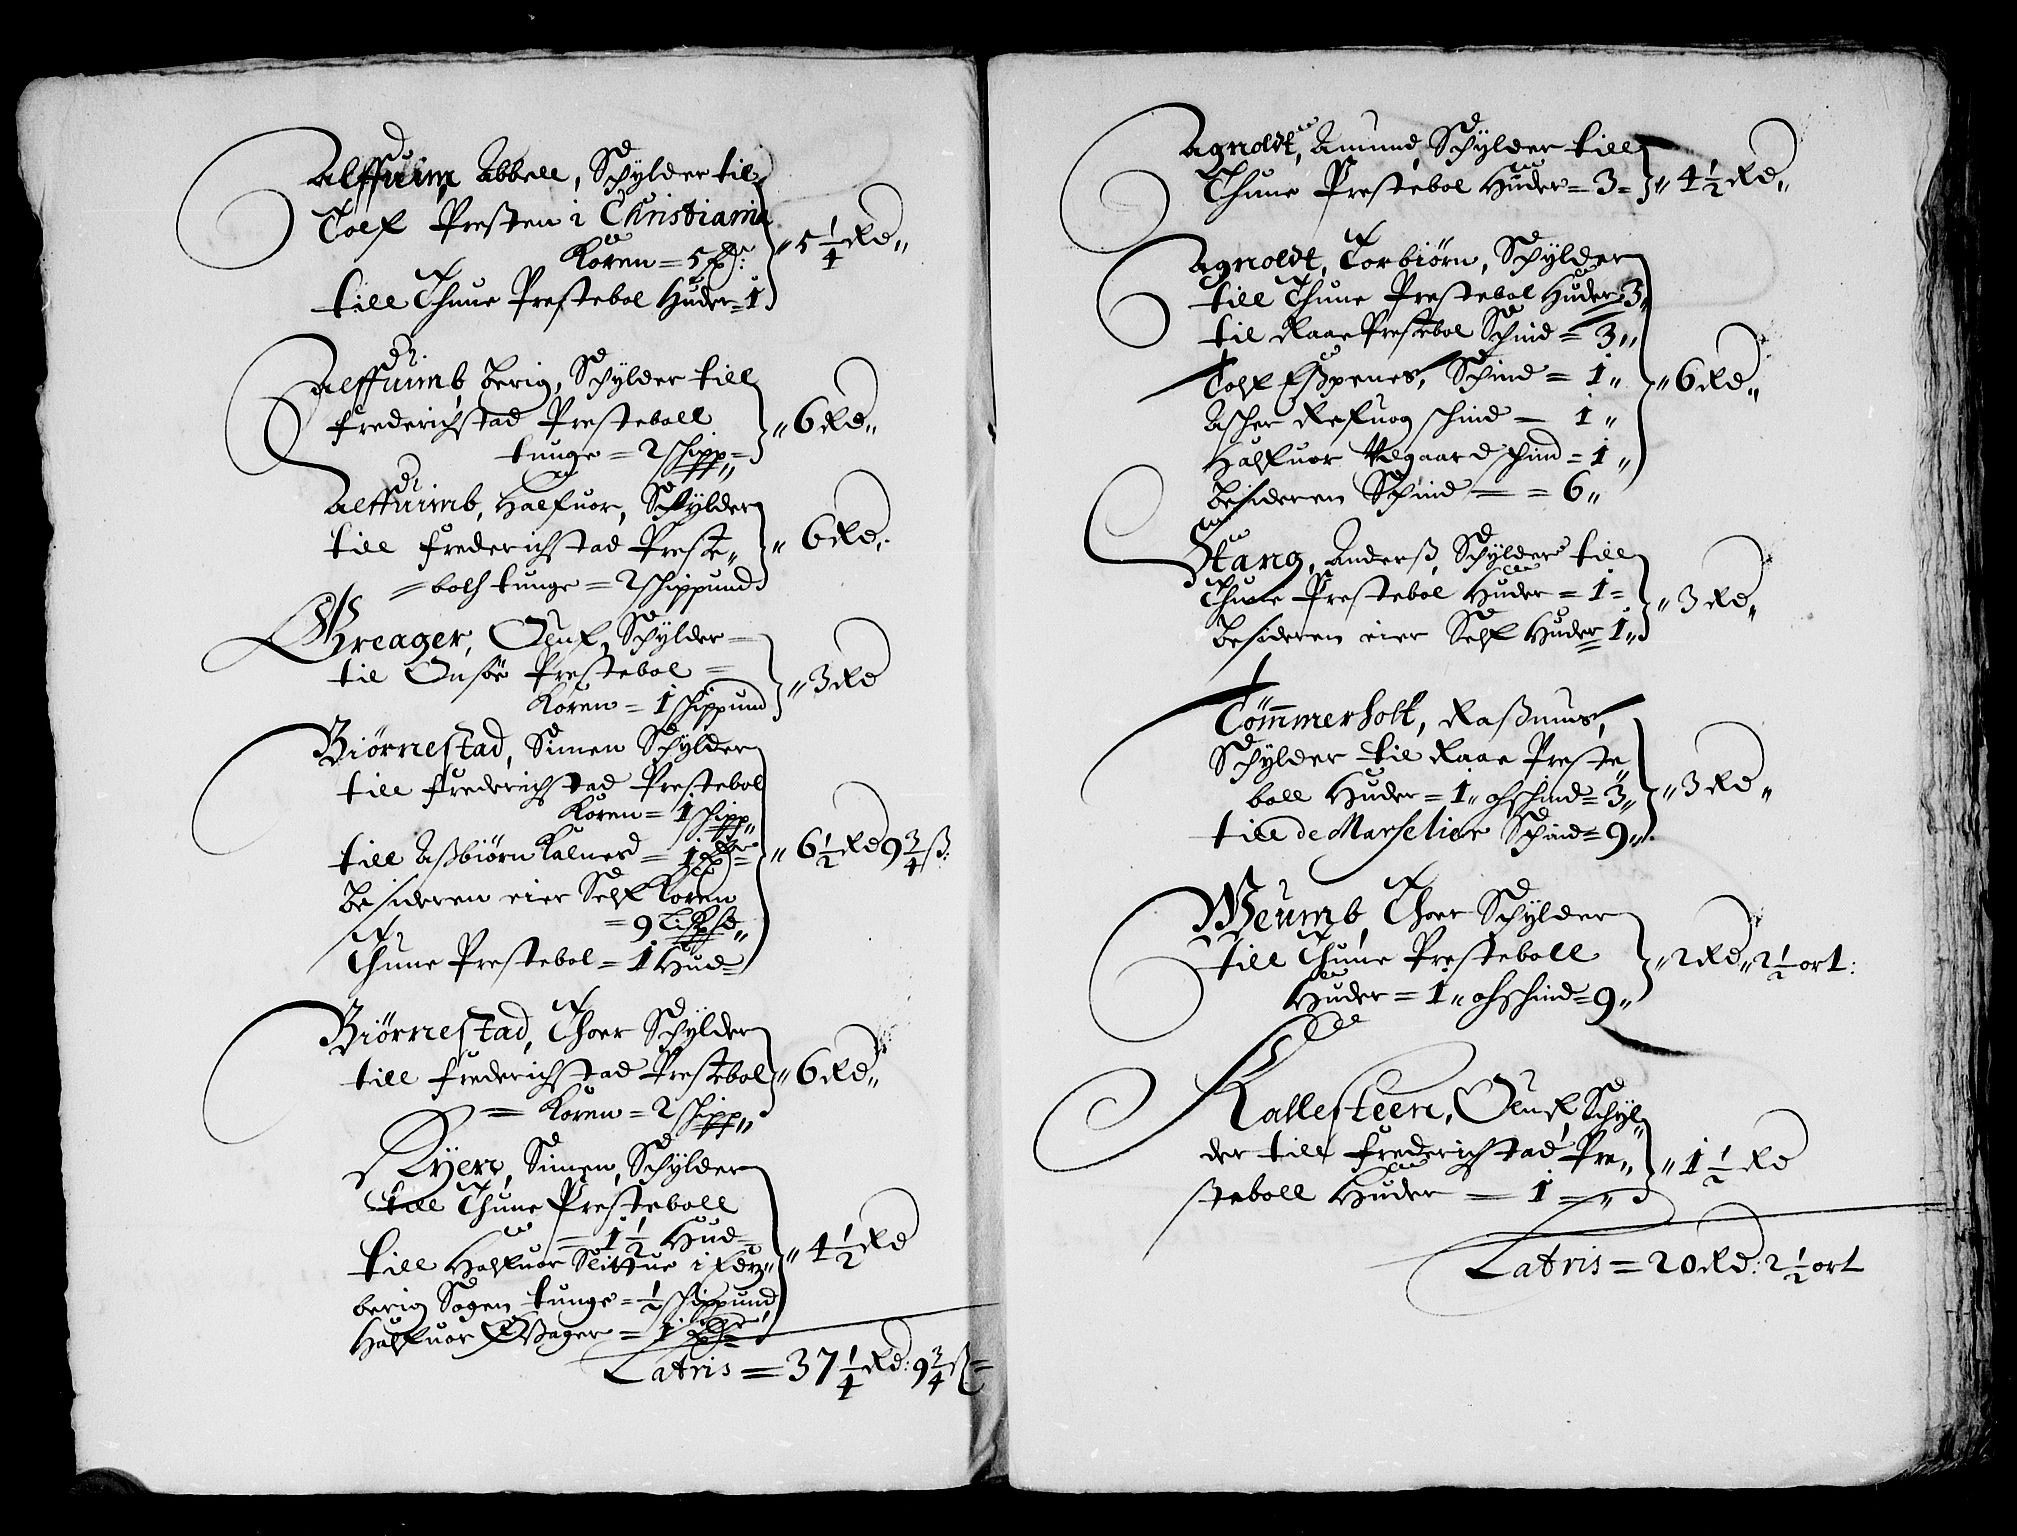 Alffuim, Abbell, Schylder til
Tolf Presten i Christiania
Koren = 5 lb:
till Thune Prestebol Huder = 1
„ 5 1/4 Rd „
Alffuimb, Berig, Schylder till
Frederichstad Presteboll
tunge = 2 schipp =
„ 6 Rd „
Alffuimb, Halfuor, Schylder
till Frederichstad Preste „
= bolh tunge = 2 schippund
„ 6 Rd „
Greager, Oluf, Schylder
til Onsøe Prestebol =
Koren = 1 schippund
„ 3 Rd
Biørnestad, Simen Schylder
till Frederichstad Prestebol
Koren = 1 schipp „
till Asbiørn Kalnes = 1
Besideren eier Self Koren
= 9 Lispd „
Thune Prestebol = 1 Hud =
„ 6 1/2 Rd 9 3/4 ß:
Biørnestad, Thoer Schylder
till Frederichstad Prestebol
= Koren = 2 schipp „
„ 6 Rd „
Ryen, Simen, Schylder
till Thune Presteboll
= 1 1/2 Hud =
till Halfuor Slittue i
berig Sogen tunge = 1/2 schippund
Halfuor = 1
„ 4 1/2 Rd
Latris = 37 1/4 Rd: 9 3/4 ß =
Agnoldt, Amund, Schylder till
Thune Prestebol Huder = 3 =
„ 4 1/2 Rd „
Agnoldt, Torbiørn, Schylder
till Thune Prestebol Huder 3 „
til Raae Prestebol Schind = 3 „
Tolf Espenes, Schind = 1 „
Ascher Refuog schind = 1 „
Halfuor Velgaard schind = 1 „
Besideren Schind = = 6 „
„ 6 Rd „
Stang, Anderß, Schylder till
Thune Prestebol Huder = 1 =
Besideren eier Self Huder 1 „
„ 3 Rd „
Tømmerholt, Raßmus,
Schylder til Raae Preste
boll Huder = 1 „ oh schind = 3 „
till de Marselier Schind = 9 „
„ 3 Rd „
Weumb, Thoer Schylder
till Thune Presteboll
Huder = 1 „ oh schind = 9 „
„ 2 Rd „ 2 1/2 ort:
Kallesteen, Oluf, Schyl
der till Frederichstad Pre „
steboll Huder = 1 = „
„ 1 1/2 Rd
Latris = 20 Rd: 2 1/2 ort